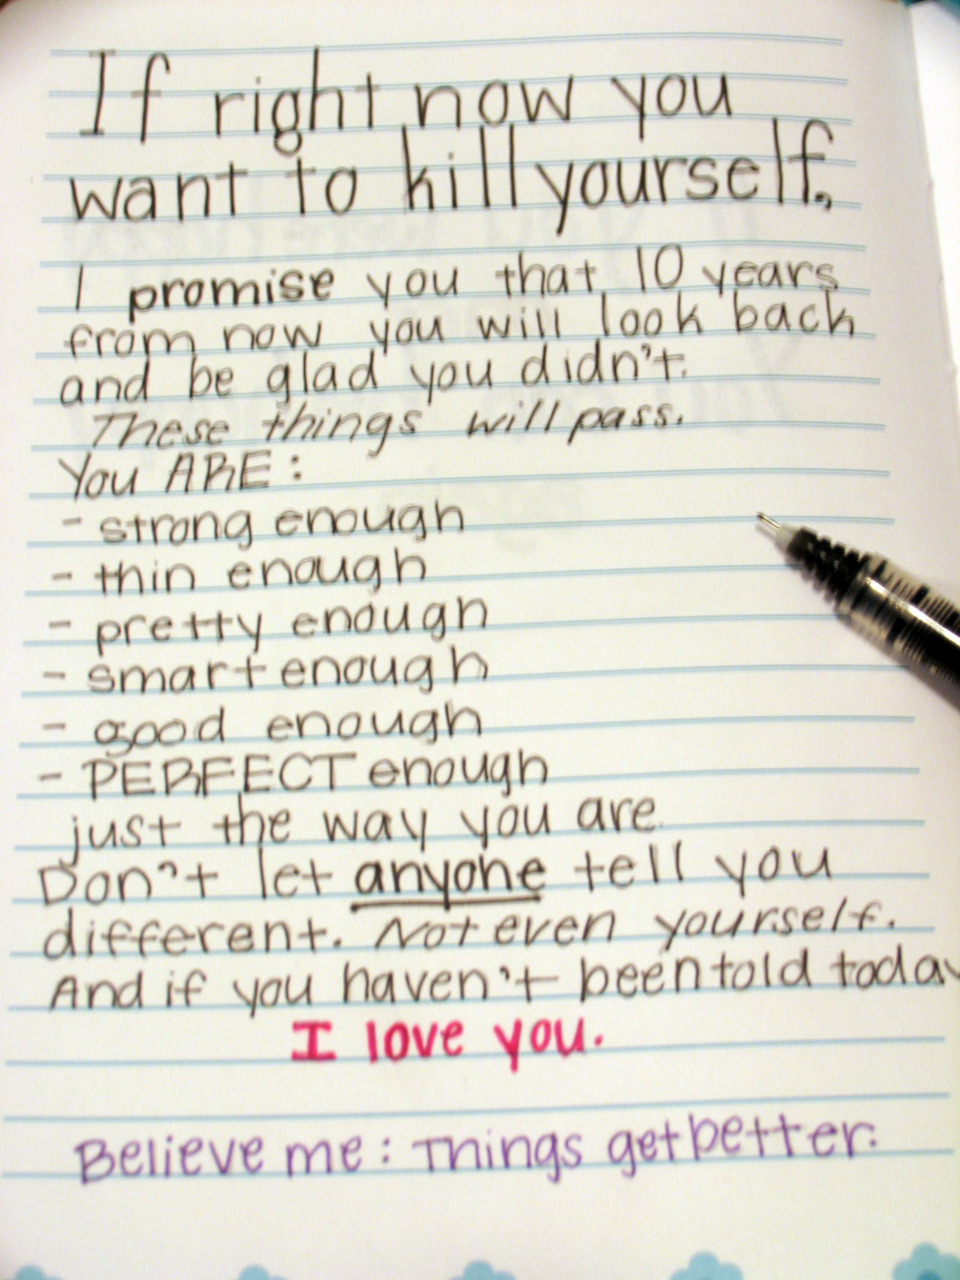 If right now you
want to kill yourself,
I promise you that 10 years
from now you will look back
and be glad you didn't.
These things will pass.
You ARE:
- strong enough
- thin enough
- pretty enough
- smart enough
- good enough
- PERFECT enough
just the way you are.
Don't let anyone tell you
different. Not even yourself.
And if you haven't been told today
I love you.
Believe me: Things get better.